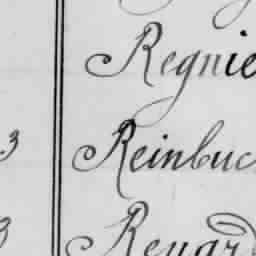 Regnie
3 Reinbuc
3 Renard